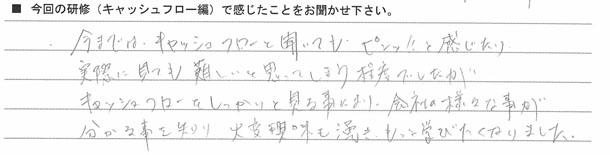 ■ 今回の研修（キャッシュフロー編）で感じたことをお聞かせ下さい。
・今までは、キャッシュフローと聞いても、ピンッ!!と感じたり
実際に見ても難しいと思ってしまう程度でしたが
キャッシュフローをしっかりと見る事により、会社の様々な事が
分かる事を知り 大変興味も湧き、もっと学びたくなりました。